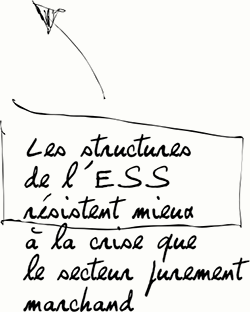 Les structures
de l'ESS
résistent mieux
à la crise que
le secteur purement
marchand